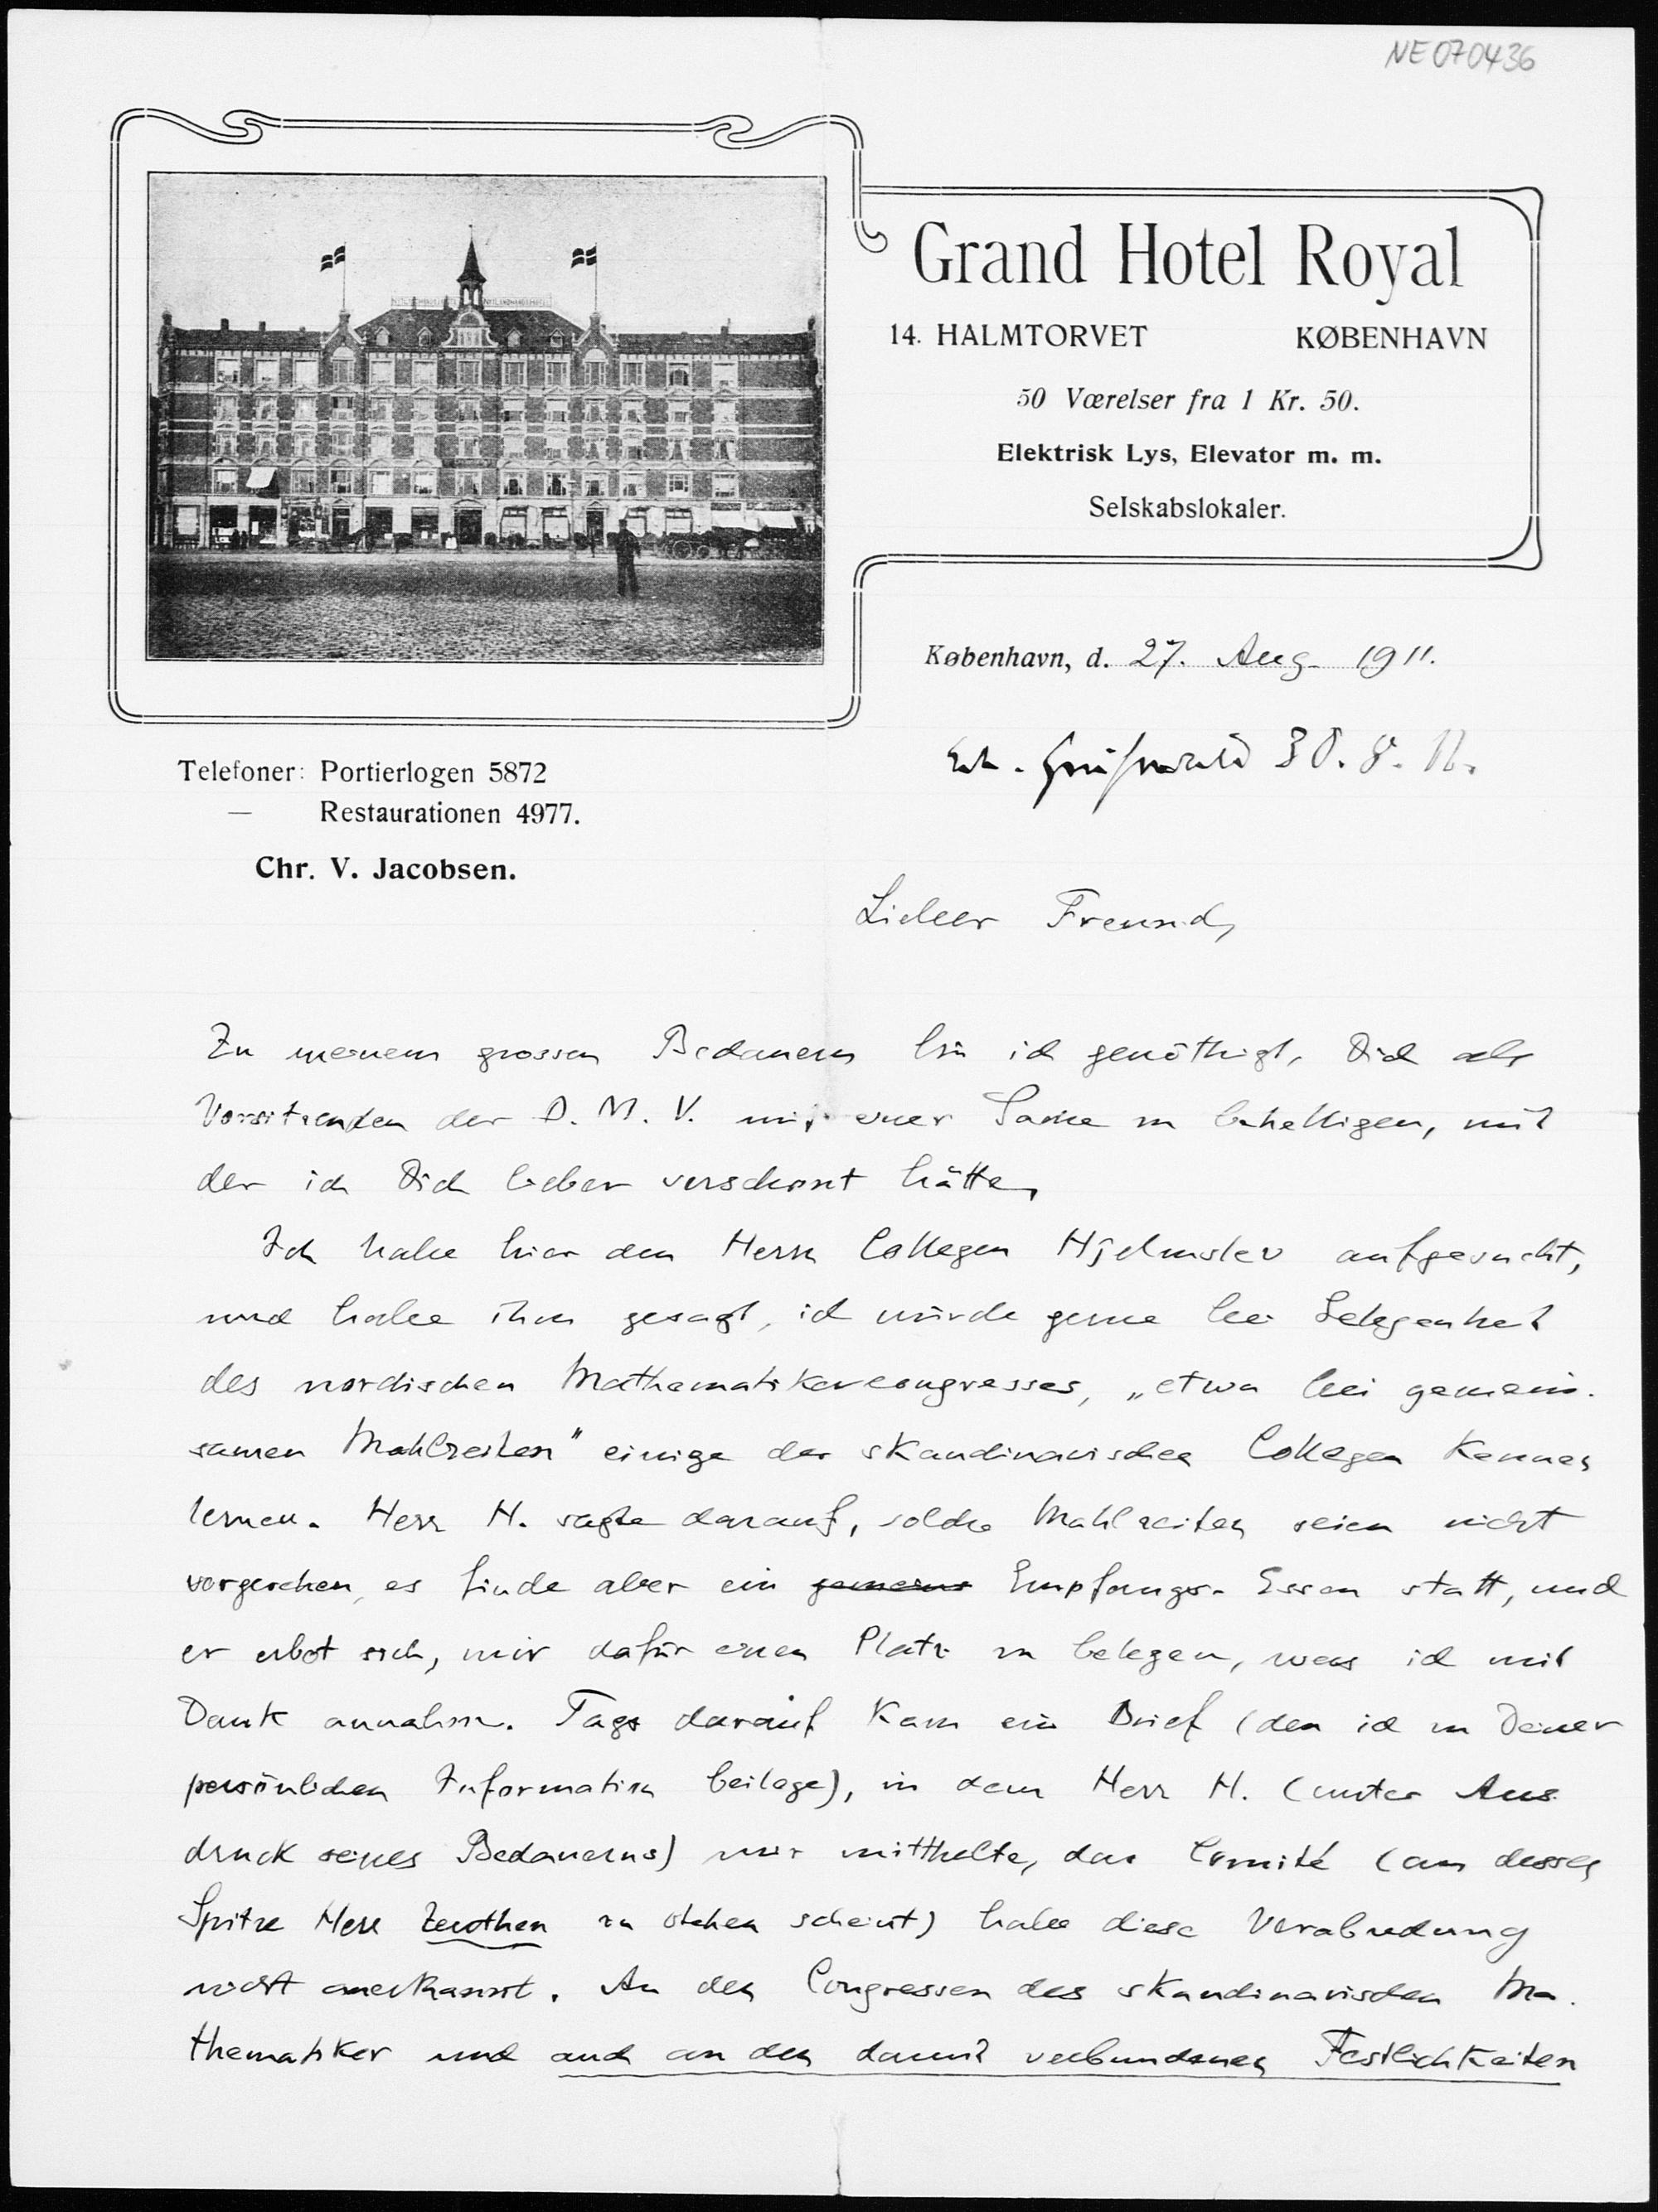 NE070436
Grand Hotel Royal
14. HALMTORVET KØBENHAVN
50 Værelser fra 1 Kr. 50.
Elektrisk Lys, Elevator m. m.
Selskabslokaler.
København, d. 27. Aug. 1911.
Erh. Greifswald 30. 8. 11.
Telefoner: Portierlogen 5872
— Restaurationen 4977.
Chr. V. Jacobsen.
Lieber Freund,
Zu meinem grossen Bedauern bin ich genöthigt, Dich als
Vorsitzenden der D. M. V. mit einer Sache zu behelligen, mit
der ich Dich lieber verschont hätte,
Ich habe hier den Herrn Collegen Hjelmslev aufgesucht,
und habe ihm gesagt, ich würde gerne bei Gelegenheit
des nordischen Mathematikercongresses, „etwa bei gemein-
samen Mahlzeiten" einige der skandinavischen Collegen kennen
lernen. Herr H. sagte darauf, solche Mahlzeiten seien nicht
vorgesehen, es finde aber ein gemeins Empfangs-Essen statt, und
er erbot sich, mir dafür einen Platz zu belegen, was ich mit
Dank annahm. Tags darauf kam ein Brief (den ich zu Deiner
persönlichen Information beilege), in dem Herr H. (unter Aus-
druck seines Bedauerns) mir mittheilte, das Comité (an dessen
Spitze Herr Zeuthen zu stehen scheint) habe diese Verabredung
nicht anerkannt. An den Congressen des skandinavischen Ma-
thematiker und auch an den damit verbundenen Festlichkeiten